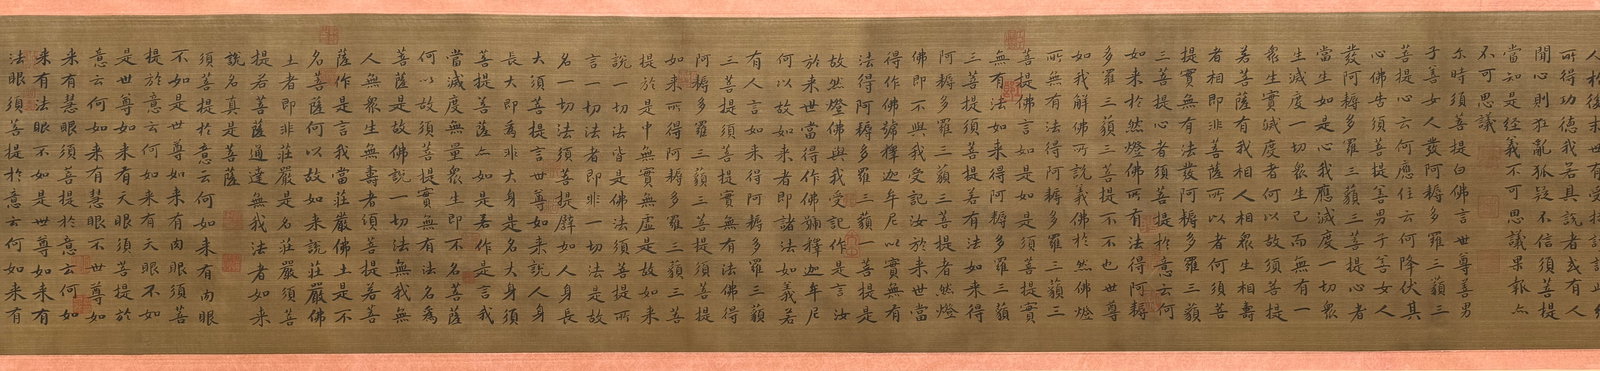 人於後末世有受持讀
所得功德我若具說者或有人
聞心則狂亂狐疑不信須菩提
當知是經義不可思議果報亦
不可思議
尒時須菩提白佛言世尊善男
子善女人發阿耨多羅三藐三
菩提心云何應住云何降伏其
心佛告須菩提善男子善女人
發阿耨多羅三藐三菩提心者
當生如是心我應滅度一切衆
生滅度一切衆生已而無有一
衆生實滅度者何以故須菩提
若菩薩有我相人相衆生相壽
者相即非菩薩所以者何須菩
提實無有法發阿耨多羅三藐
三菩提心者須菩提於意云何
如來於然燈佛所有法得阿耨
多羅三藐三菩提不不也世尊
如我解佛所說義佛於然佛燈
所無有法得阿耨多羅三藐三
菩提佛言如是如是須菩提實
無有法如來得阿耨多羅三藐
三菩提須菩提若有法如來得
阿耨多羅三藐三菩提者然燈
佛即不與我受記汝於來世當
得作佛號釋迦牟尼以實無有
法得阿耨多羅三藐一菩提是
故然燈佛與我受記作是言汝
於來世當得作佛釋迦牟尼
何以故如來者即諸法如義若
有人言如來得阿耨多羅三藐
三菩提須菩提實無有法佛得
阿耨多羅三藐三菩提須菩提
如來所得阿耨多羅三藐三菩
提於是中無實無虛是故如來
說一切法皆是佛法須菩提所
言一切法者即非一切法是故
名一切法須菩提譬如人身長
大須菩提言世尊如來說人身
長大即為非大身是名大身須
菩提菩薩亦如是若作是言我
當滅度無量衆生即不名菩薩
何以故須菩提實無有法名為
菩薩是故佛說一切法無我無
人無衆生無壽者須菩提若菩
薩作是言我當莊嚴佛土是不
名菩薩何以故如來說莊嚴佛
土者即非莊嚴是名莊嚴須菩
提若菩薩通達無我法者如來
說名真是菩薩
須菩提於意云何如來有肉眼
不如是世尊如來有肉眼須菩
提於意云何如來有天眼不如
是世尊如來有天眼須菩提於
意云何如來有慧眼不世尊如
來有慧眼須菩提於意云何如
來有法眼不如是世尊如來有
法眼須菩提於意云何如來有